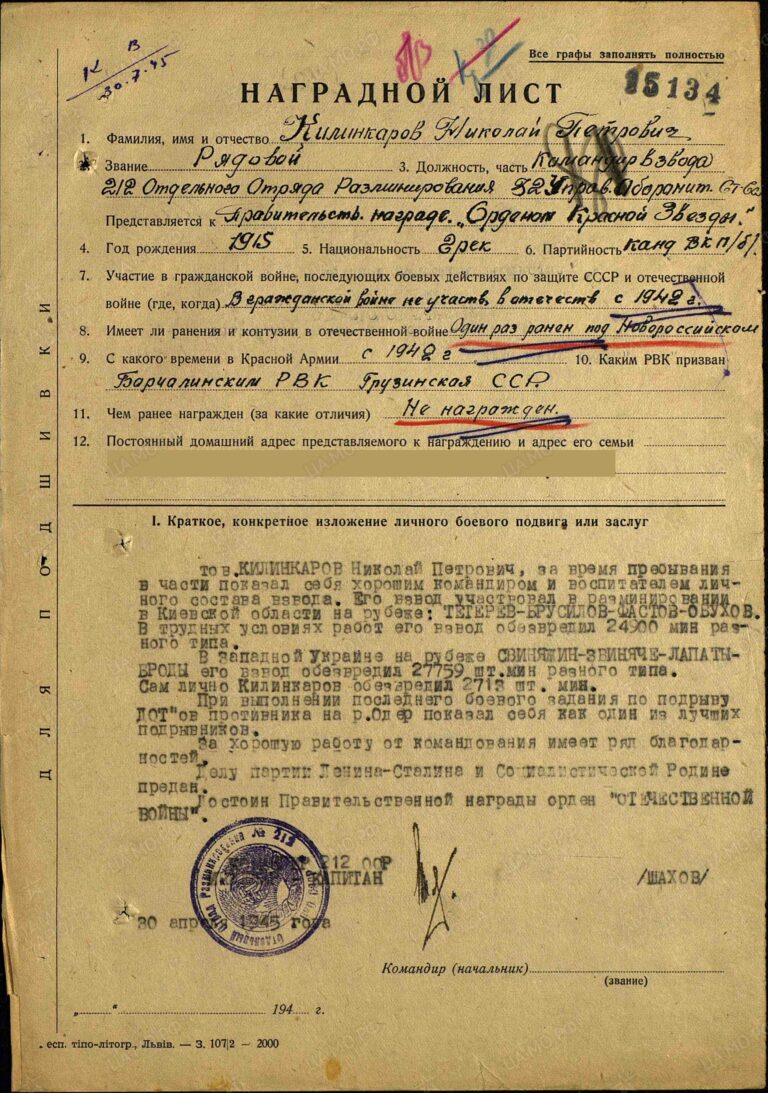 К В
30.7.45
Все графы заполнять полностью
15134
НАГРАДНОЙ ЛИСТ
1. Фамилия, имя и отчество Килинкаров Николай Петрович
Звание Рядовой 3. Должность, часть Командир взвода
212 Отдельного Отряда Разминирования 32 Управ. Оборонит.
Представляется к Правительств. награде „Орденом Красной Звезды."
4. Год рождения 1915 5. Национальность Грек 6. Партийность канд ВКП/б/.
7. Участие в гражданской войне, последующих боевых действиях по защите СССР и отечественной
войне (где, когда) В гражданской войне не участв, в отечеств с 1942 г.
8. Имеет ли ранения и контузии в отечественной войне Один раз ранен под Новороссийском
9. С какого времени в Красной Армии с 1942 г 10. Каким РВК призван
Барчалинским РВК Грузинская ССР
11. Чем ранее награжден (за какие отличия) Не награжден.
12. Постоянный домашний адрес представляемого к награждению и адрес его семьи
ДЛЯ ПОДШИВКИ
I. Краткое, конкретное изложение личного боевого подвига или заслуг
тов.КИЛИНКАРОВ Николай Петрович, за время пребывания
в части показал себя хорошим командиром и воспитателем лич-
ного состава взвода. Его взвод участвовал в разминировании
в Киевской области на рубеже: ТЕТЕРЕВ-БРУСИЛОВ-ФАСТОВ-ОБУХОВ.
В трудных условиях работ его взвод обезвредил 24900 мин раз-
ного типа.
В Западной Украине на рубеже СВИНЯЖИН-ЗВИНЯЧЕ-ЛАПАТЫ-
БРОДЫ его взвод обезвредил 27759 шт.мин разного типа.
Сам лично Килинкаров обезвредил 2713 шт. мин.
При выполнении последнего боевого задания по подрыву
ДОТ"ов противника на р.Одер показал себя как один из лучших
подрывников.
За хорошую работу от командования имеет ряд благодар-
ностей.
Делу партии Ленина-Сталина и Социалистической Родине
предан.
Достоин Правительственной награды орден "ОТЕЧЕСТВЕННОЙ
ВОЙНЫ".
212 ООР
КАПИТАН /ШАХОВ/
Отдельный Отряд Разминирования № 212
30 апреля 1945 года
Командир (начальник)
(звание)
„ " 194 г.
. есп. тіпо-літогр., Львів. — З. 107|2 — 2000